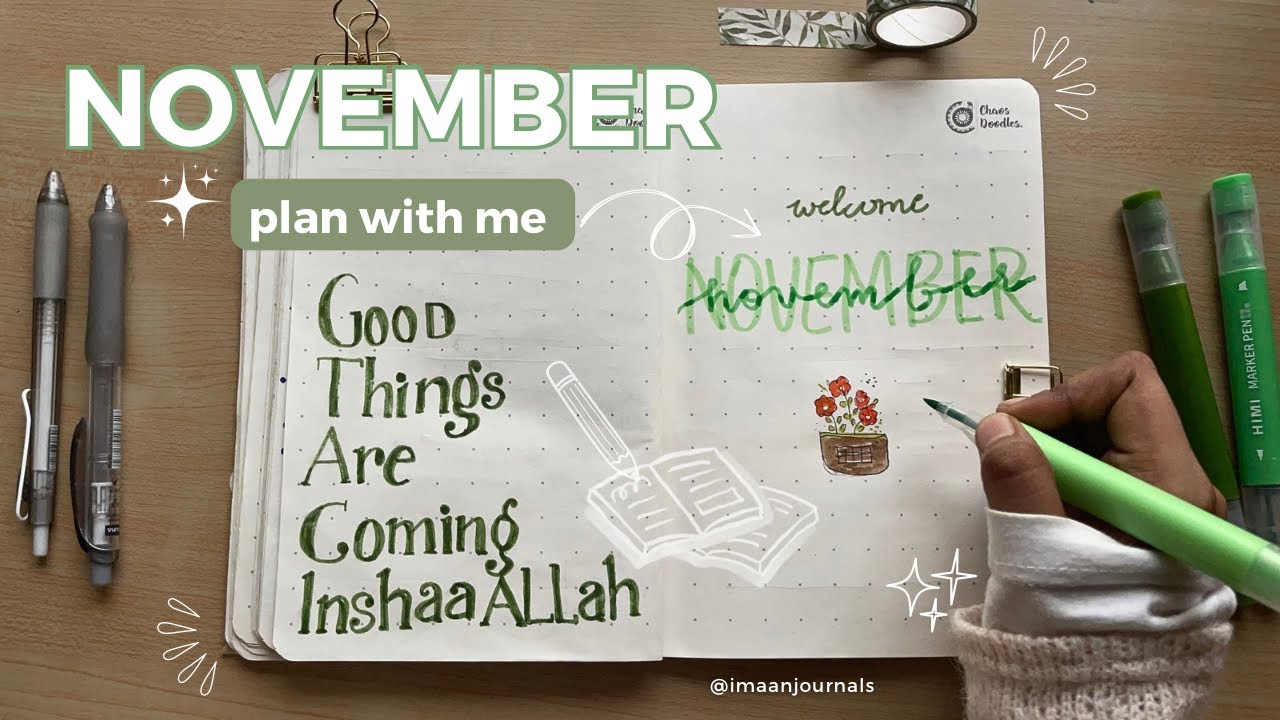 NOVEMBER
plan with me
Good
Things
Are
Coming
InshaaALLah
Chaos
Doodles.
welcome
NOVEMBER
november
HIMI MARKER PEN
@imaanjournals